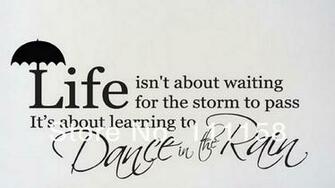 Life isn't about waiting
for the storm to pass
It's about learning to
Dance in the Rain
Store No: 141158